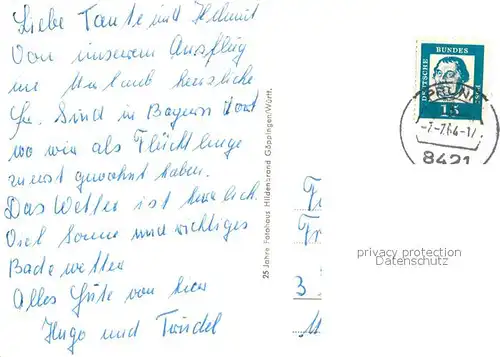 Liebe Tante und Helmut
Von unserem Ausflug
im Urlaub herzliche
Gr. Sind in Bayern dort
wo wir als Flüchtlinge
zuerst gewohnt haben.
Das Wetter ist herrlich.
Viel Sonne und richtiges
Bade wetter
Alles Gute von hier
Hugo und
25 Jahre Fotohaus Hildenbrand Göppingen/Württ.
DEUTSCHE BUNDESPOST
15
PRUNN
-7.-7.64-17
8421
3
privacy protection
Datenschutz